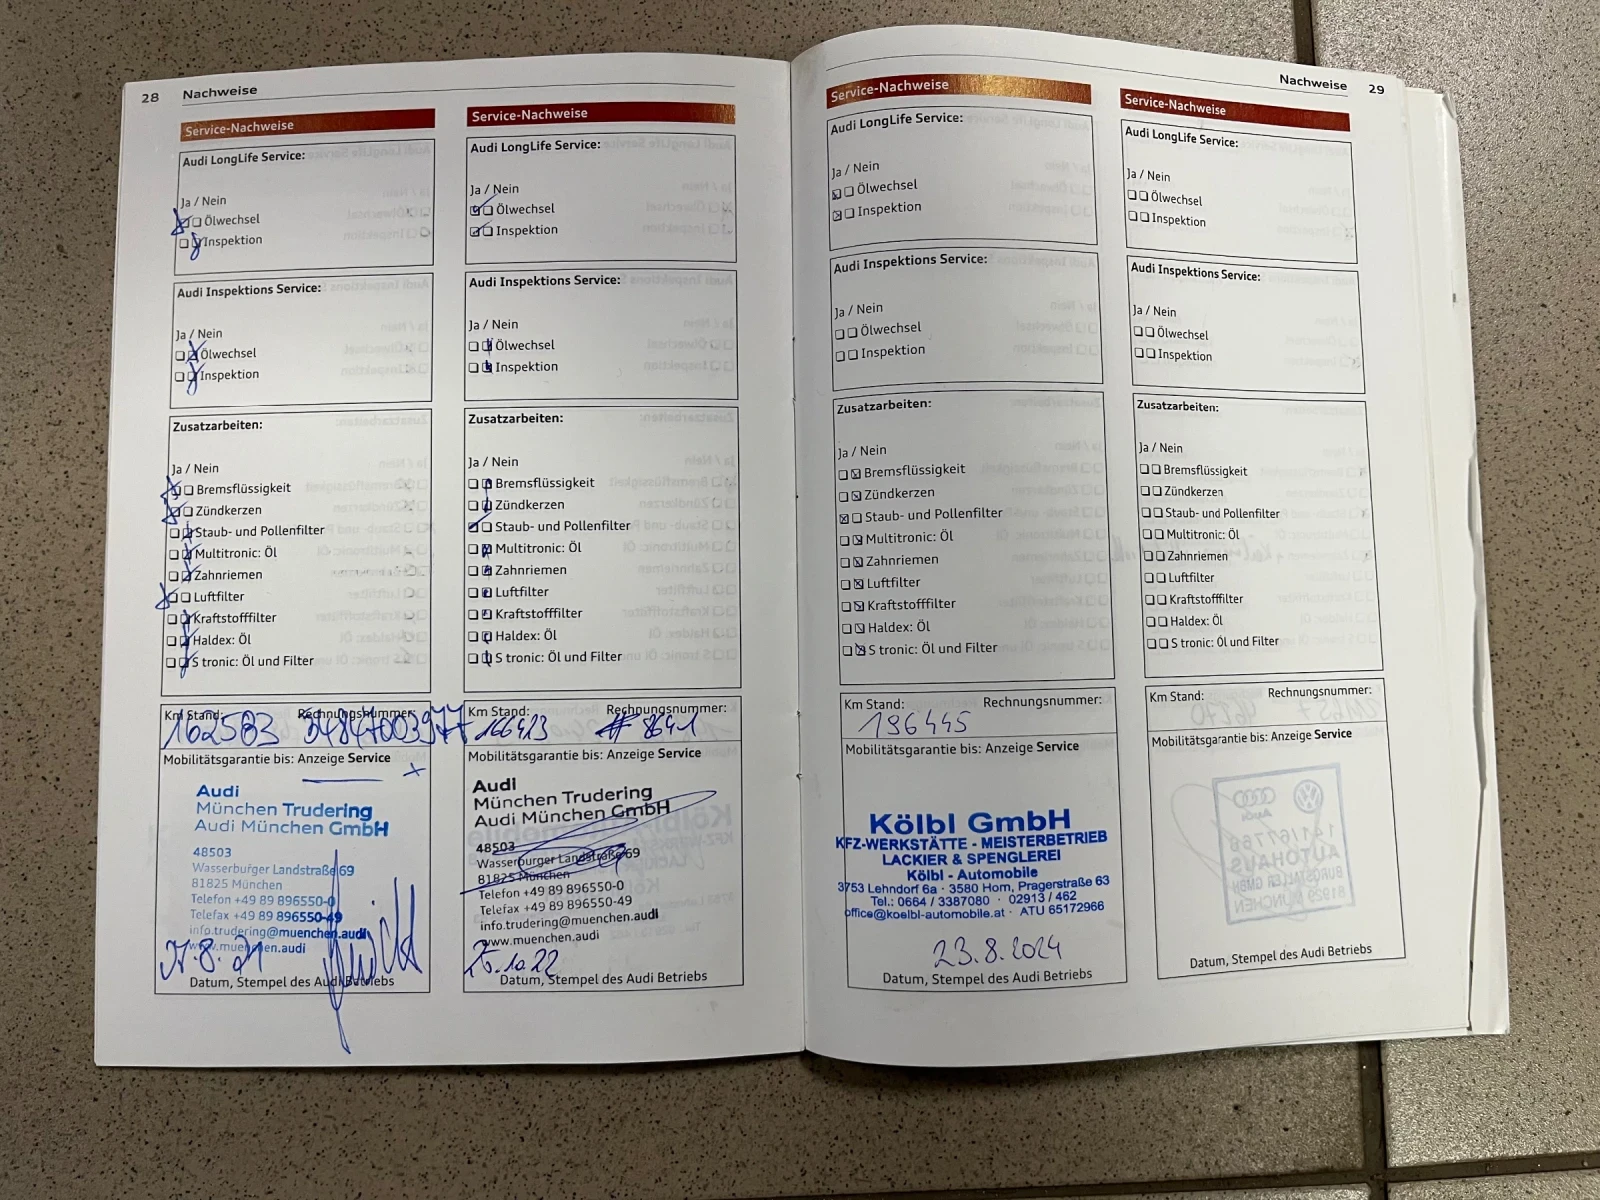 28 Nachweise
Service-Nachweise
Audi LongLife Service:
Ja / Nein
Ölwechsel
Inspektion
Audi Inspektions Service:
Ja / Nein
Ölwechsel
Inspektion
Zusatzarbeiten:
Ja / Nein
Bremsflüssigkeit
Zündkerzen
Staub- und Pollenfilter
Multitronic: Öl
Zahnriemen
Luftfilter
Kraftstofffilter
Haldex: Öl
S tronic: Öl und Filter
Km Stand: Rechnungsnummer:
162583 34847003977
Mobilitätsgarantie bis: Anzeige Service
Audi
München Trudering
Audi München GmbH
48503
Wasserburger Landstraße 69
81825 München
Telefon +49 89 896550-0
Telefax +49 89 896550-49
info.trudering@muenchen.audi
www.muenchen.audi
Datum, Stempel des Audi Betriebs
Service-Nachweise
Audi LongLife Service:
Ja / Nein
Ölwechsel
Inspektion
Audi Inspektions Service:
Ja / Nein
Ölwechsel
Inspektion
Zusatzarbeiten:
Ja / Nein
Bremsflüssigkeit
Zündkerzen
Staub- und Pollenfilter
Multitronic: Öl
Zahnriemen
Luftfilter
Kraftstofffilter
Haldex: Öl
S tronic: Öl und Filter
Km Stand: Rechnungsnummer:
166413 # 8641
Mobilitätsgarantie bis: Anzeige Service
Audi
München Trudering
Audi München GmbH
48503
Wasserburger Landstraße 69
81825 München
Telefon +49 89 896550-0
Telefax +49 89 896550-49
info.trudering@muenchen.audi
www.muenchen.audi
25.10.22
Datum, Stempel des Audi Betriebs
Nachweise 29
Service-Nachweise
Audi LongLife Service:
Ja / Nein
Ölwechsel
Inspektion
Audi Inspektions Service:
Ja / Nein
Ölwechsel
Inspektion
Zusatzarbeiten:
Ja / Nein
Bremsflüssigkeit
Zündkerzen
Staub- und Pollenfilter
Multitronic: Öl
Zahnriemen
Luftfilter
Kraftstofffilter
Haldex: Öl
S tronic: Öl und Filter
Km Stand: Rechnungsnummer:
196445
Mobilitätsgarantie bis: Anzeige Service
Kölbl GmbH
KFZ-WERKSTÄTTE - MEISTERBETRIEB
LACKIER & SPENGLEREI
Kölbl - Automobile
3753 Lehndorf 6a · 3580 Horn, Pragerstraße 63
Tel.: 0664 / 3387080 · 02913 / 462
office@koelbl-automobile.at · ATU 65172966
23.8.2024
Datum, Stempel des Audi Betriebs
Service-Nachweise
Audi LongLife Service:
Ja / Nein
Ölwechsel
Inspektion
Audi Inspektions Service:
Ja / Nein
Ölwechsel
Inspektion
Zusatzarbeiten:
Ja / Nein
Bremsflüssigkeit
Zündkerzen
Staub- und Pollenfilter
Multitronic: Öl
Zahnriemen
Luftfilter
Kraftstofffilter
Haldex: Öl
S tronic: Öl und Filter
Km Stand: Rechnungsnummer:
Mobilitätsgarantie bis: Anzeige Service
Datum, Stempel des Audi Betriebs